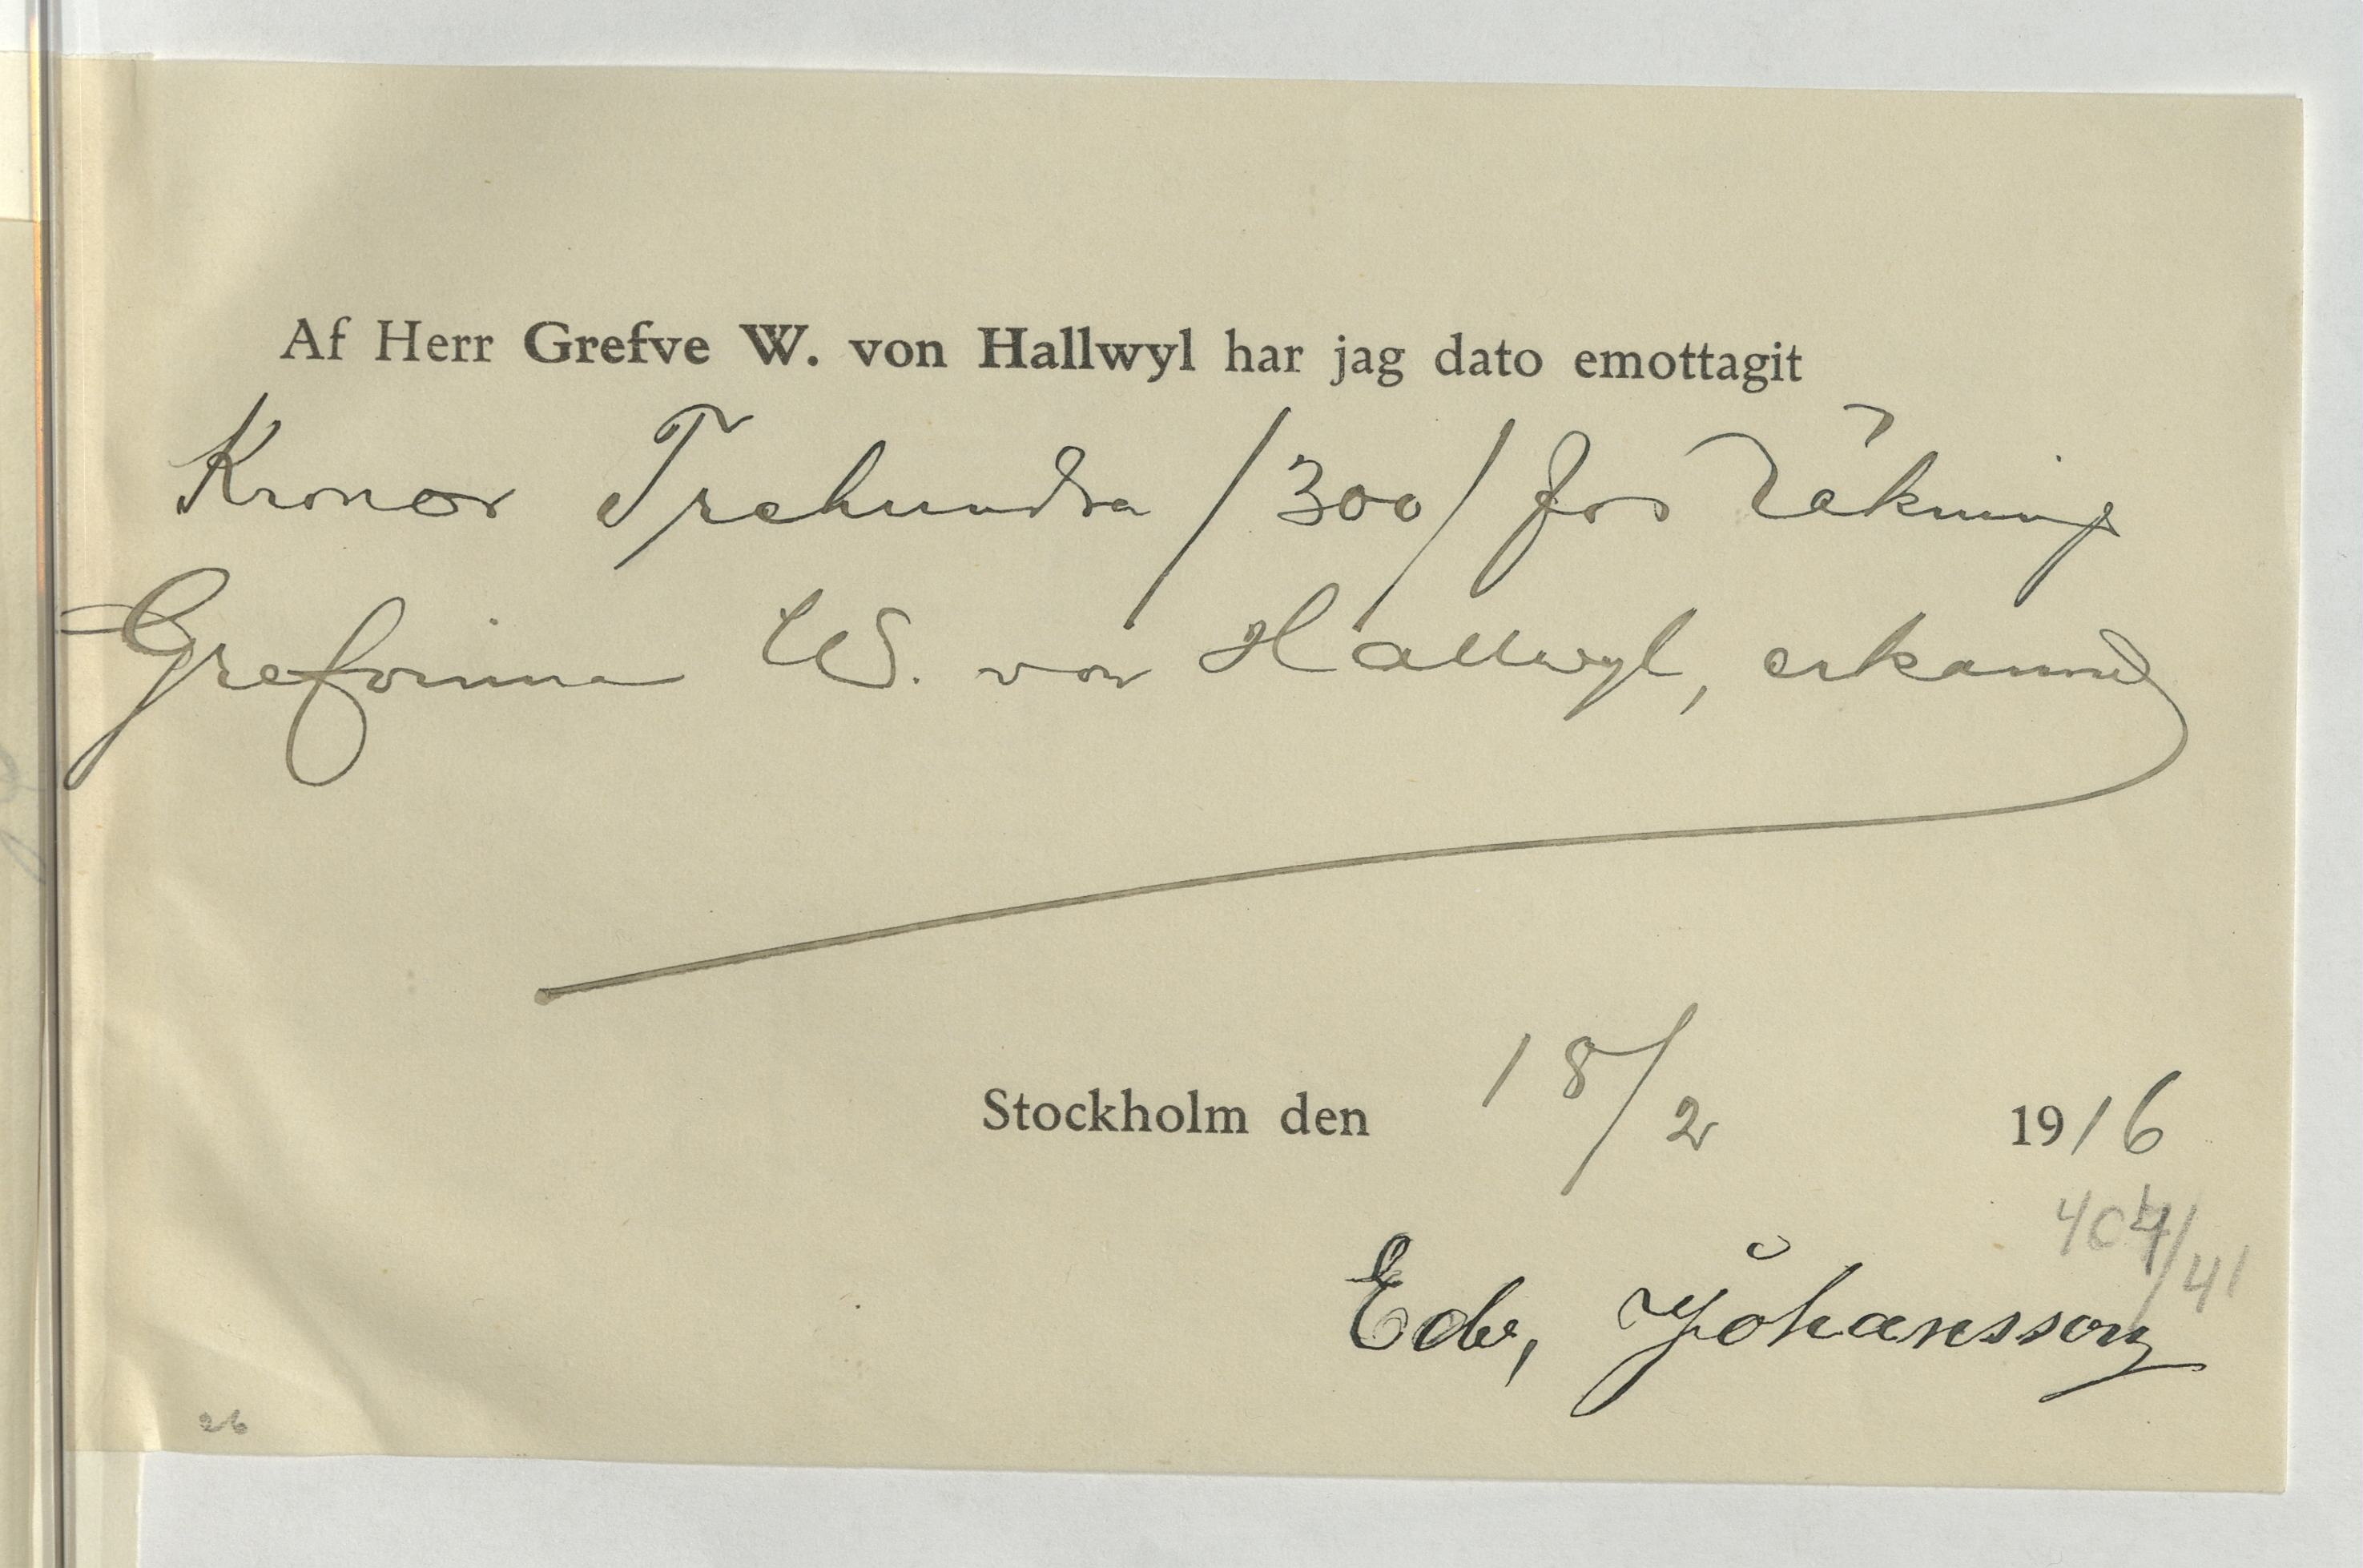 Af Herr Grefve W. von Hallwyl har jag dato emottagit
Kronor Trehundra /300/ för räkning
Grefvinna W. von Hallwyl, erkännes
Stockholm den 18/2 1916
/41
Edv, Johansson
26